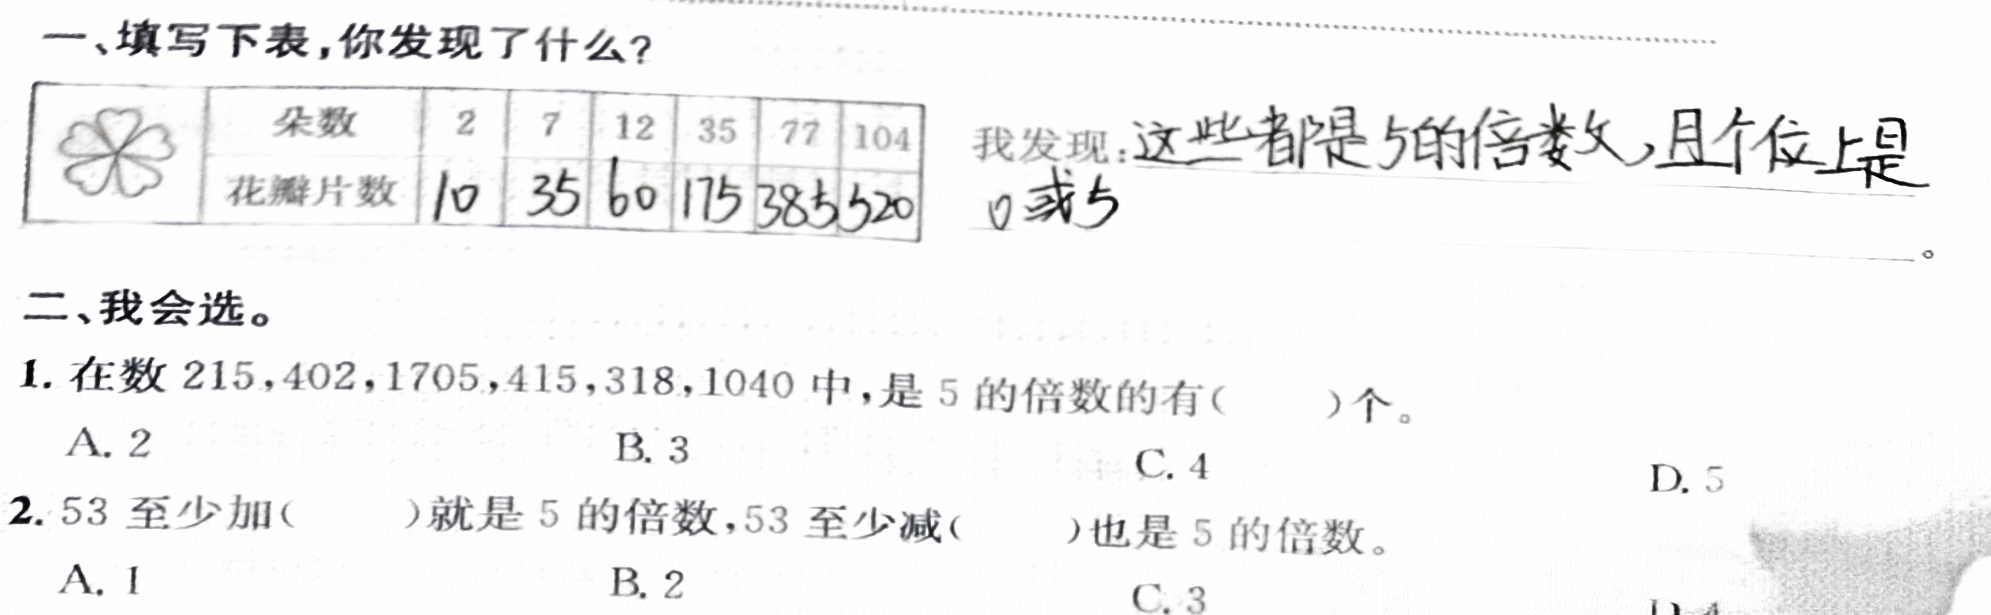 一、填写下表,你发现了什么?
朵数 2 7 12 35 77 104
花瓣片数 10 35 60 175 385 520
我发现:这些都是5的倍数,且个位上是
0或5
。
二、我会选。
1. 在数 215,402,1705,415,318,1040 中,是 5 的倍数的有( )个。
A. 2 B. 3 C. 4 D. 5
2. 53 至少加( )就是 5 的倍数,53 至少减( )也是 5 的倍数。
A. 1 B. 2 C. 3